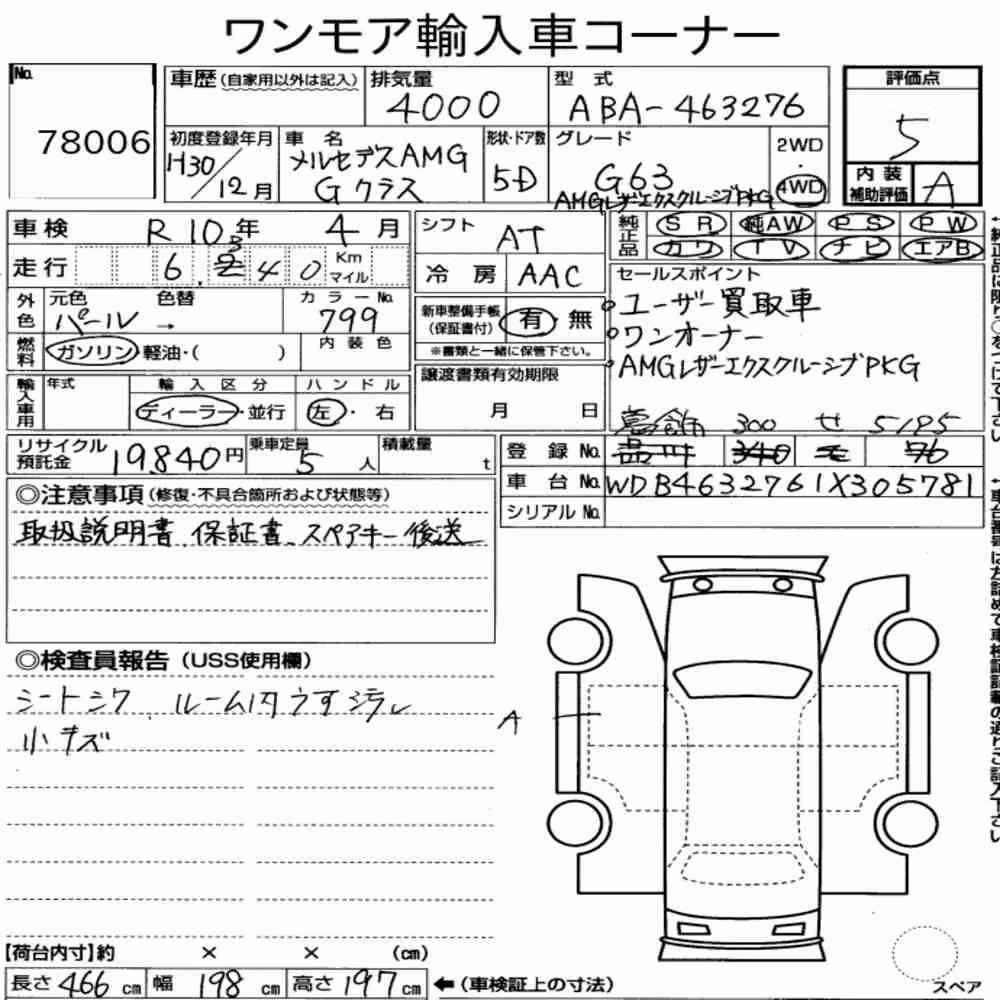 ワンモア輸入車コーナー
No. 78006
車歴 (自家用以外は記入) 排気量 4000 型式 ABA-463276 評価点 5
初度登録年月 H30/12月 車名 メルセデスAMG Gクラス 形状・ドア数 5D グレード G63 AMGレザーエクスクルーシブPKG 2WD・4WD 内装補助評価 A
車検 R10年 4月 シフト AT 純正品 SR 純AW PS PW
カワ TV ナビ エアB
走行 6, 340 Km マイル 冷房 AAC
セールスポイント
ユーザー買取車
ワンオーナー
AMGレザーエクスクルーシブPKG
外色 元色 パール 色替 → カラーNo. 799 新車整備手帳(保証書付) 有・無
燃料 ガソリン・軽油・( ) 内装色 ※書類と一緒に保管下さい。
輸入車用 年式 輸入区分 ディーラー・並行 ハンドル 左・右 譲渡書類有効期限 月 日
リサイクル預託金 19,840円 乗車定員 5人 積載量 t
葛飾 300 せ 5185
登録No. 品川 340 76
車台No. WDB4632761X305781
シリアルNo.
◎注意事項 (修復・不具合箇所および状態等)
取扱説明書、保証書、スペアキー後送
◎検査員報告 (USS使用欄)
シートシワ、ルーム内うすヨゴレ
小キズ
A
【荷台内寸】約 × × (cm)
長さ 466 cm 幅 198 cm 高さ 197 cm ←(車検証上の寸法)
スペア